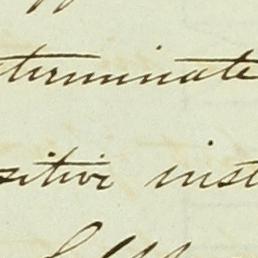 terminate
sitive inst